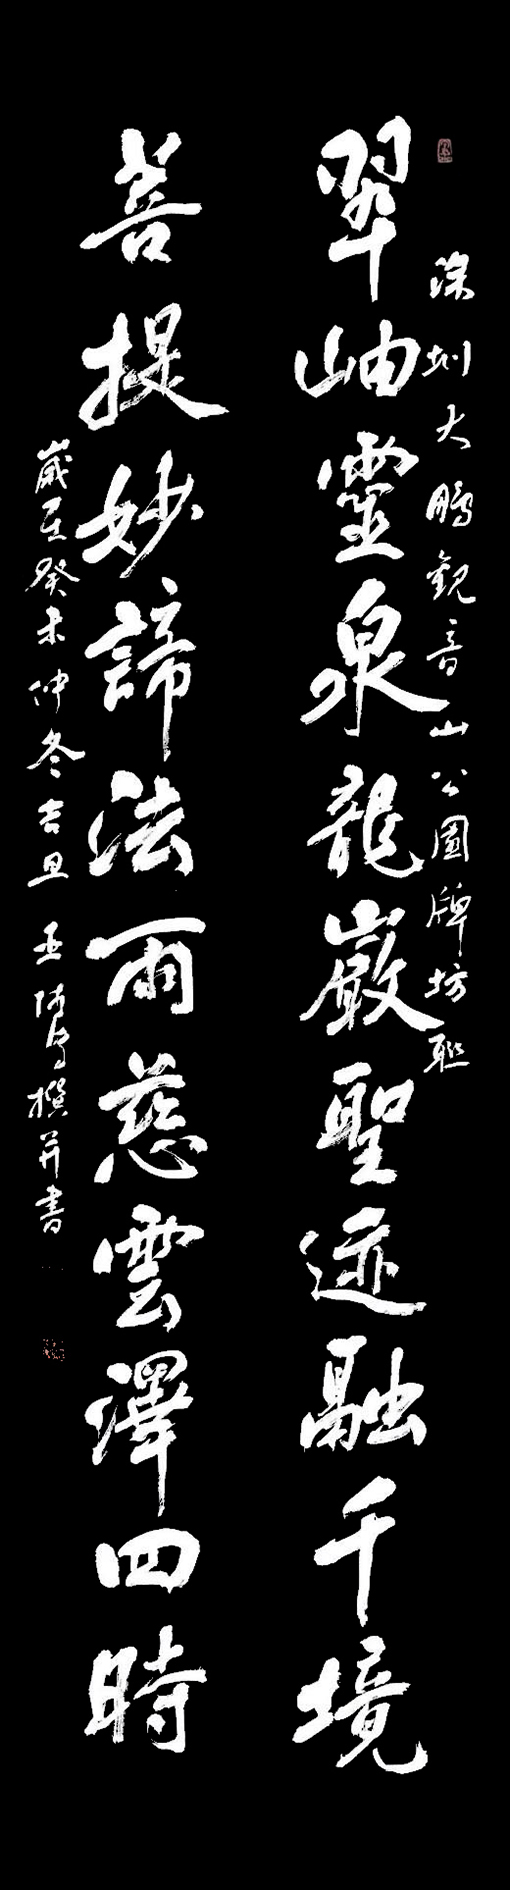 深圳大鵬觀音山公園牌坊聯
翠岫靈泉龍巖聖迹融千境
菩提妙諦法雨慈雲澤四時
歲在癸未仲冬吉旦 撰并書